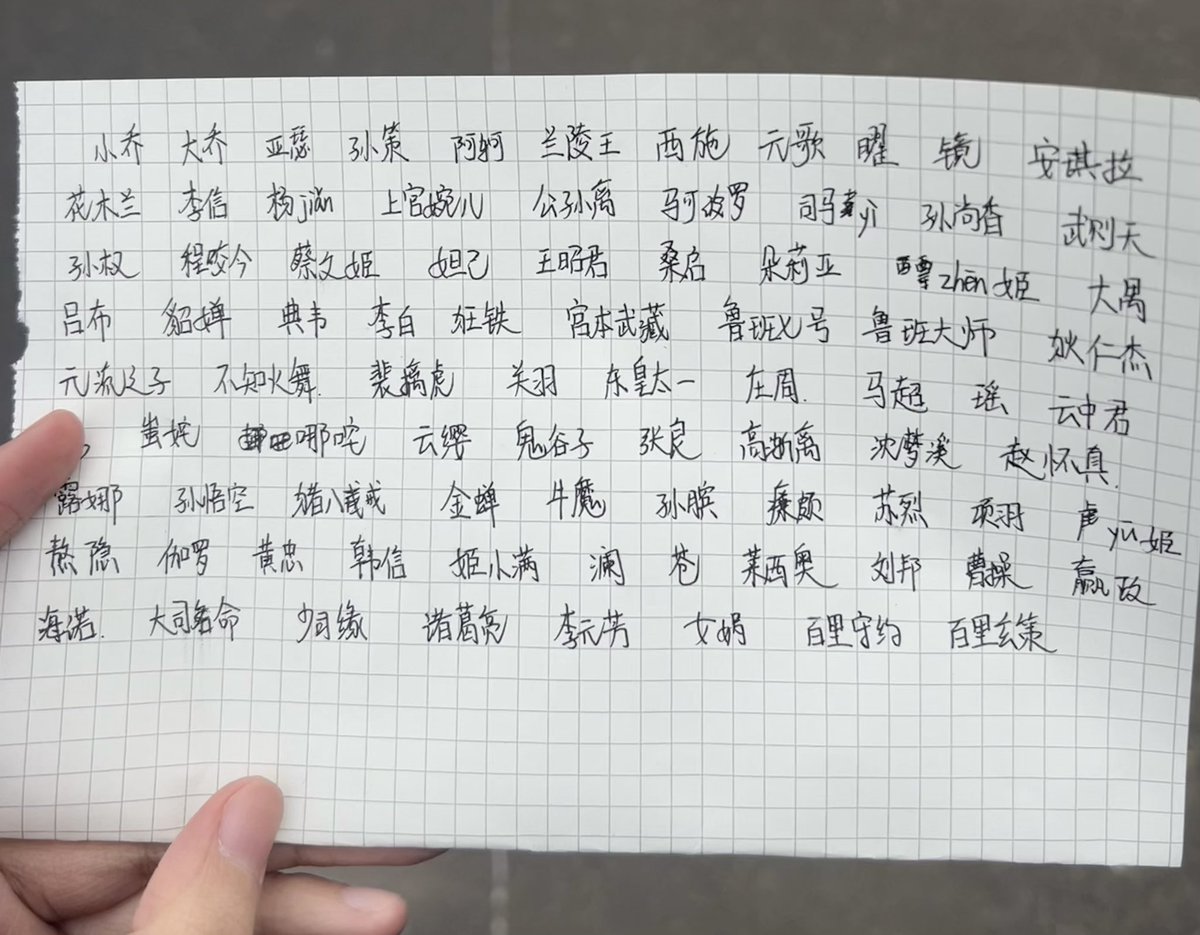 小乔 大乔 亚瑟 孙策 阿轲 兰陵王 西施 元歌 曜 镜 安琪拉
花木兰 李信 杨jiǎn 上官婉儿 公孙离 马可波罗 司马yì 孙尚香 武则天
孙权 程咬金 蔡文姬 妲己 王昭君 桑启 朵莉亚 zhēn姬 大禹
吕布 貂蝉 典韦 李白 狂铁 宫本武藏 鲁班七号 鲁班大师 狄仁杰
元流之子 不知火舞. 裴擒虎 关羽 东皇太一 庄周. 马超 瑶 云中君
蚩奼 哪咤 云缨 鬼谷子 张良 高渐离 沈梦溪 赵怀真.
露娜 孙悟空 猪八戒 金蝉 牛魔 孙膑 廉颇 苏烈 项羽 yū姬
敖隐 伽罗 黄忠 韩信 姬小满 澜 苍 莱西奥 刘邦 曹操 嬴政
海诺. 大司命 少司缘 诸葛亮 李元芳 女娲 百里守约 百里玄策